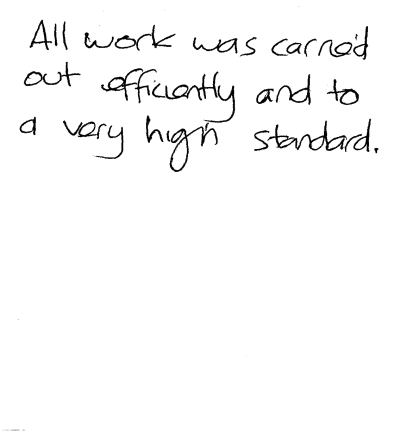 All work was carried
out efficiently and to
a very high standard.